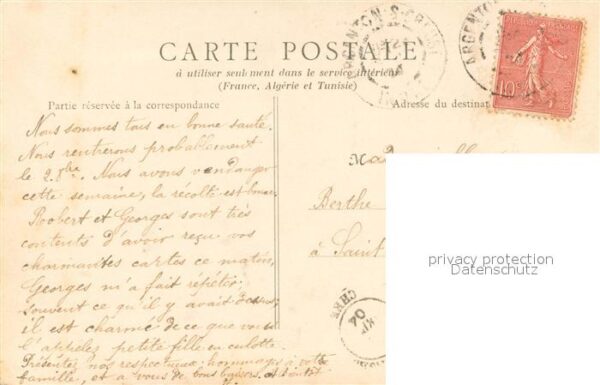 CARTE POSTALE
à utiliser seulement dans le service intérieur
(France, Algérie et Tunisie)
Partie réservée à la correspondance
Adresse du destinat
ARGENTON-S-CREUSE
ARGENTO
10
Nous sommes tous en bonne santé.
Nous rentrerons probablement
le 2 8bre. Nous avons vendangé
cette semaine, la récolte est bonne.
Roobert et Georges sont très
contents d'avoir reçu vos
charmantes cartes ce matin,
Georges m'a fait répéter
souvent ce qu'il y avait dessus;
il est charmé de ce que vous
l'appelez petite fille en culotte.
Présentez nos respectueux hommages à votre
famille, et à vous de bons baisers
Berthe
à Saint
CHER
04
privacy protection
Datenschutz